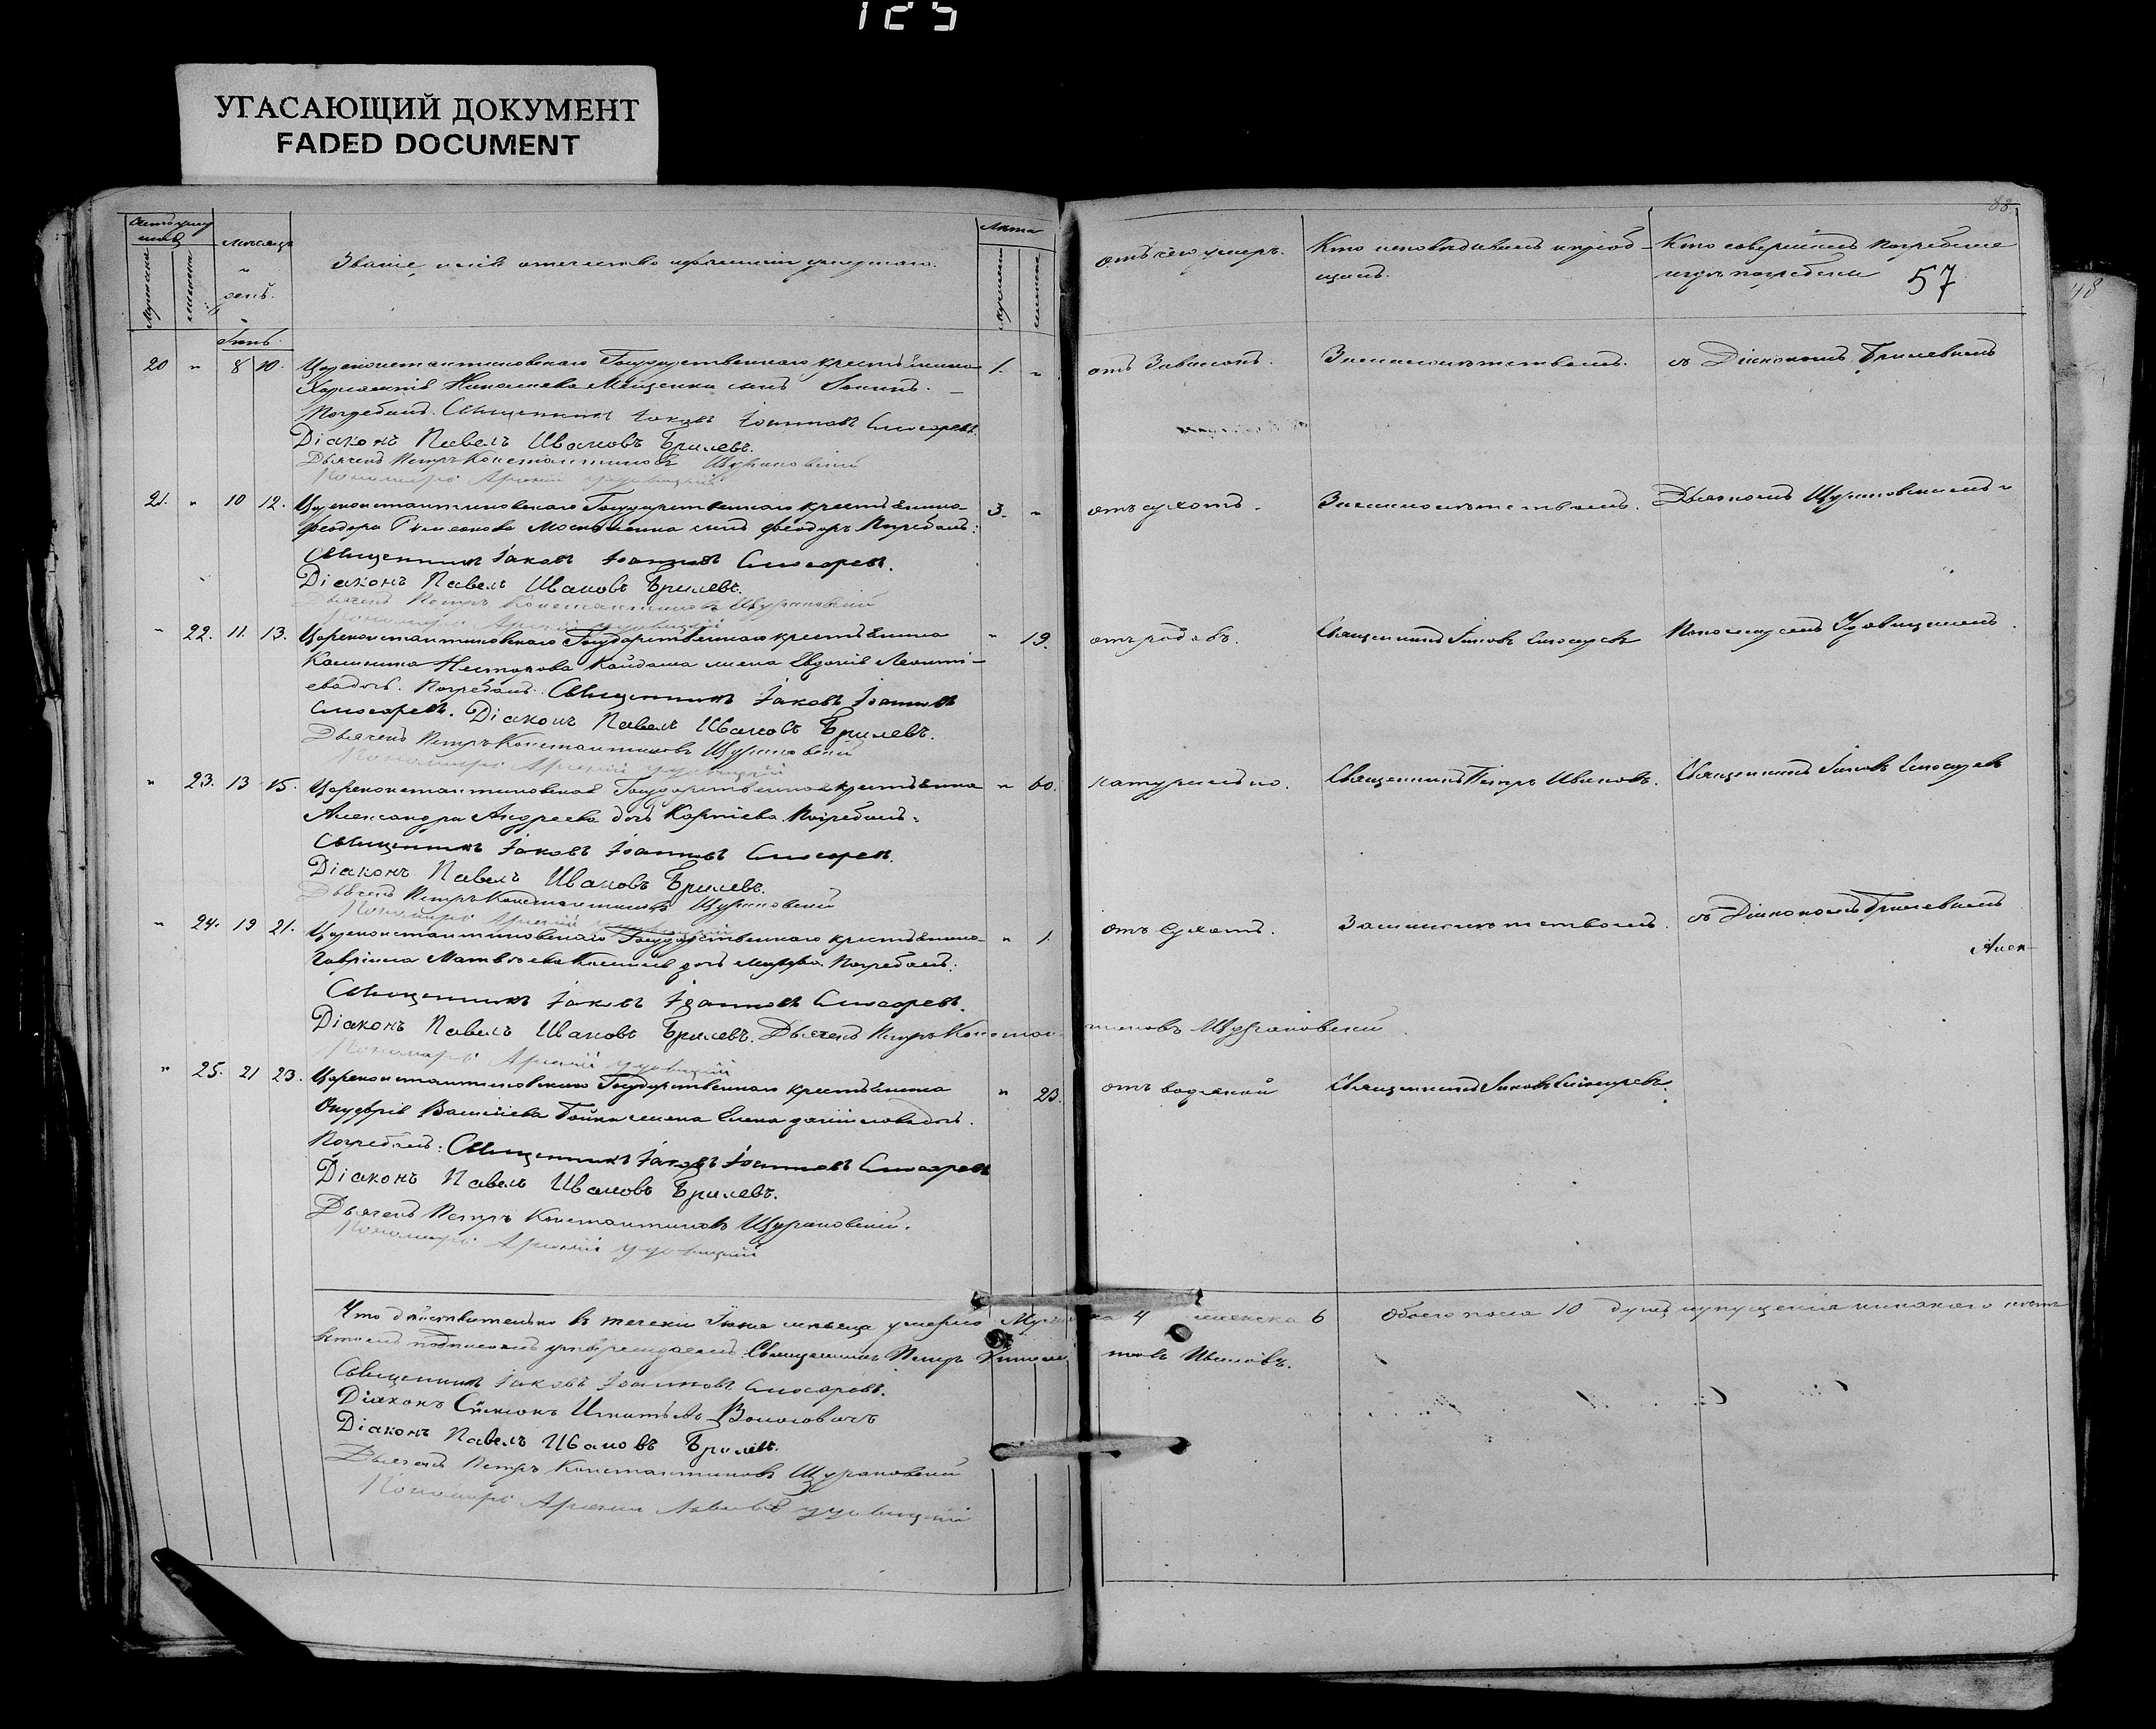 125
УГАСАЮЩИЙ ДОКУМЕНТ
FADED DOCUMENT
88.
мѣсяцъ
и
день.
Званіе, имя отечество и фамилія умершаго.
Лѣта
отъ чего умеръ.
Кто исповѣдывалъ и пріоб-
щилъ.
Кто совершилъ погребеніе
и гдѣ погребены
57
48
Іюнь
20 " 8 10. Цареконстантиновскаго Государственнаго крестьянина 1. "
Николаева сынъ
Погребали: Священникъ Іаковъ Іоанновъ Слюсаревъ.
Діаконъ Павелъ Ивановъ Брилевъ.
Дьячекъ Петръ Константиновъ Щурановскій
Пономарь Арсеній Удовицкій
За малолѣтствомъ. съ Діакономъ Брилевымъ
21. " 10 12. Цареконстантиновскаго Государственнаго крестьянина 3. "
Феодора сынъ Феодоръ Погребали:
Священникъ Іаковъ Іоанновъ Слюсаревъ.
Діаконъ Павелъ Ивановъ Брилевъ.
Дьячекъ Петръ Константиновъ Щурановскій
Пономарь Арсеній Удовицкій
отъ сухотъ. За малолѣтствомъ. Дьячкомъ Щурановскимъ
" 22. 11. 13. Цареконстантиновскаго Государственнаго крестьянина " 19.
Калиника Несторова Кайдаша жена Евдокія Леонті-
ева дочь. Погребали: Священникъ Іаковъ Іоанновъ
Слюсаревъ. Діаконъ Павелъ Ивановъ Брилевъ.
Дьячекъ Петръ Константиновъ Щурановскій
Пономарь Арсеній Удовицкій
отъ родовъ. Священникъ Іаковъ Слюсаревъ Пономаремъ Удовицкимъ.
" 23. 13 15. Цареконстантиновская Государственная крестьянка " 60.
Александра Андреева дочь Погребали:
Священникъ Іаковъ Іоанновъ Слюсаревъ.
Діаконъ Павелъ Ивановъ Брилевъ.
Дьячекъ Петръ Константиновъ Щурановскій
Пономарь Арсеній Удовицкій
натурально. Священникъ Петръ Ивановъ. Священникъ Іаковъ Слюсаревъ
" 24. 19 21. Цареконстантиновскаго Государственнаго крестьянина " 1.
Гавріила Матвѣева дочь Погребали:
Священникъ Іаковъ Іоанновъ Слюсаревъ.
Діаконъ Павелъ Ивановъ Брилевъ. Дьячекъ Петръ Констан-
тиновъ Щурановскій.
Пономарь Арсеній Удовицкій
отъ сухотъ. За малолѣтствомъ. съ Діакономъ Брилевымъ
" 25. 21 23. Цареконстантиновскаго Государственнаго крестьянина " 23.
Онуфрія Васильева Бойка жена Елена Даніилова дочь.
Погребали: Священникъ Іаковъ Іоанновъ Слюсаревъ
Діаконъ Павелъ Ивановъ Брилевъ.
Дьячекъ Петръ Константиновъ Щурановскій.
Пономарь Арсеній Удовицкій
отъ водяной Священникъ Іаковъ Слюсаревъ.
Что дѣйствительно въ теченіи Іюня мѣсяца умерло Мужеска 4 женска 6 обоего пола 10 душъ и пущенія никакого нѣтъ
въ томъ подписомъ утверждаемъ. Священникъ Петръ Ивановъ.
Священникъ Іаковъ Іоанновъ Слюсаревъ.
Діаконъ Сѵмеонъ Игнатьевъ
Діаконъ Павелъ Ивановъ Брилевъ.
Дьячекъ Петръ Константиновъ Щурановскій
Пономарь Арсеній Удовицкій